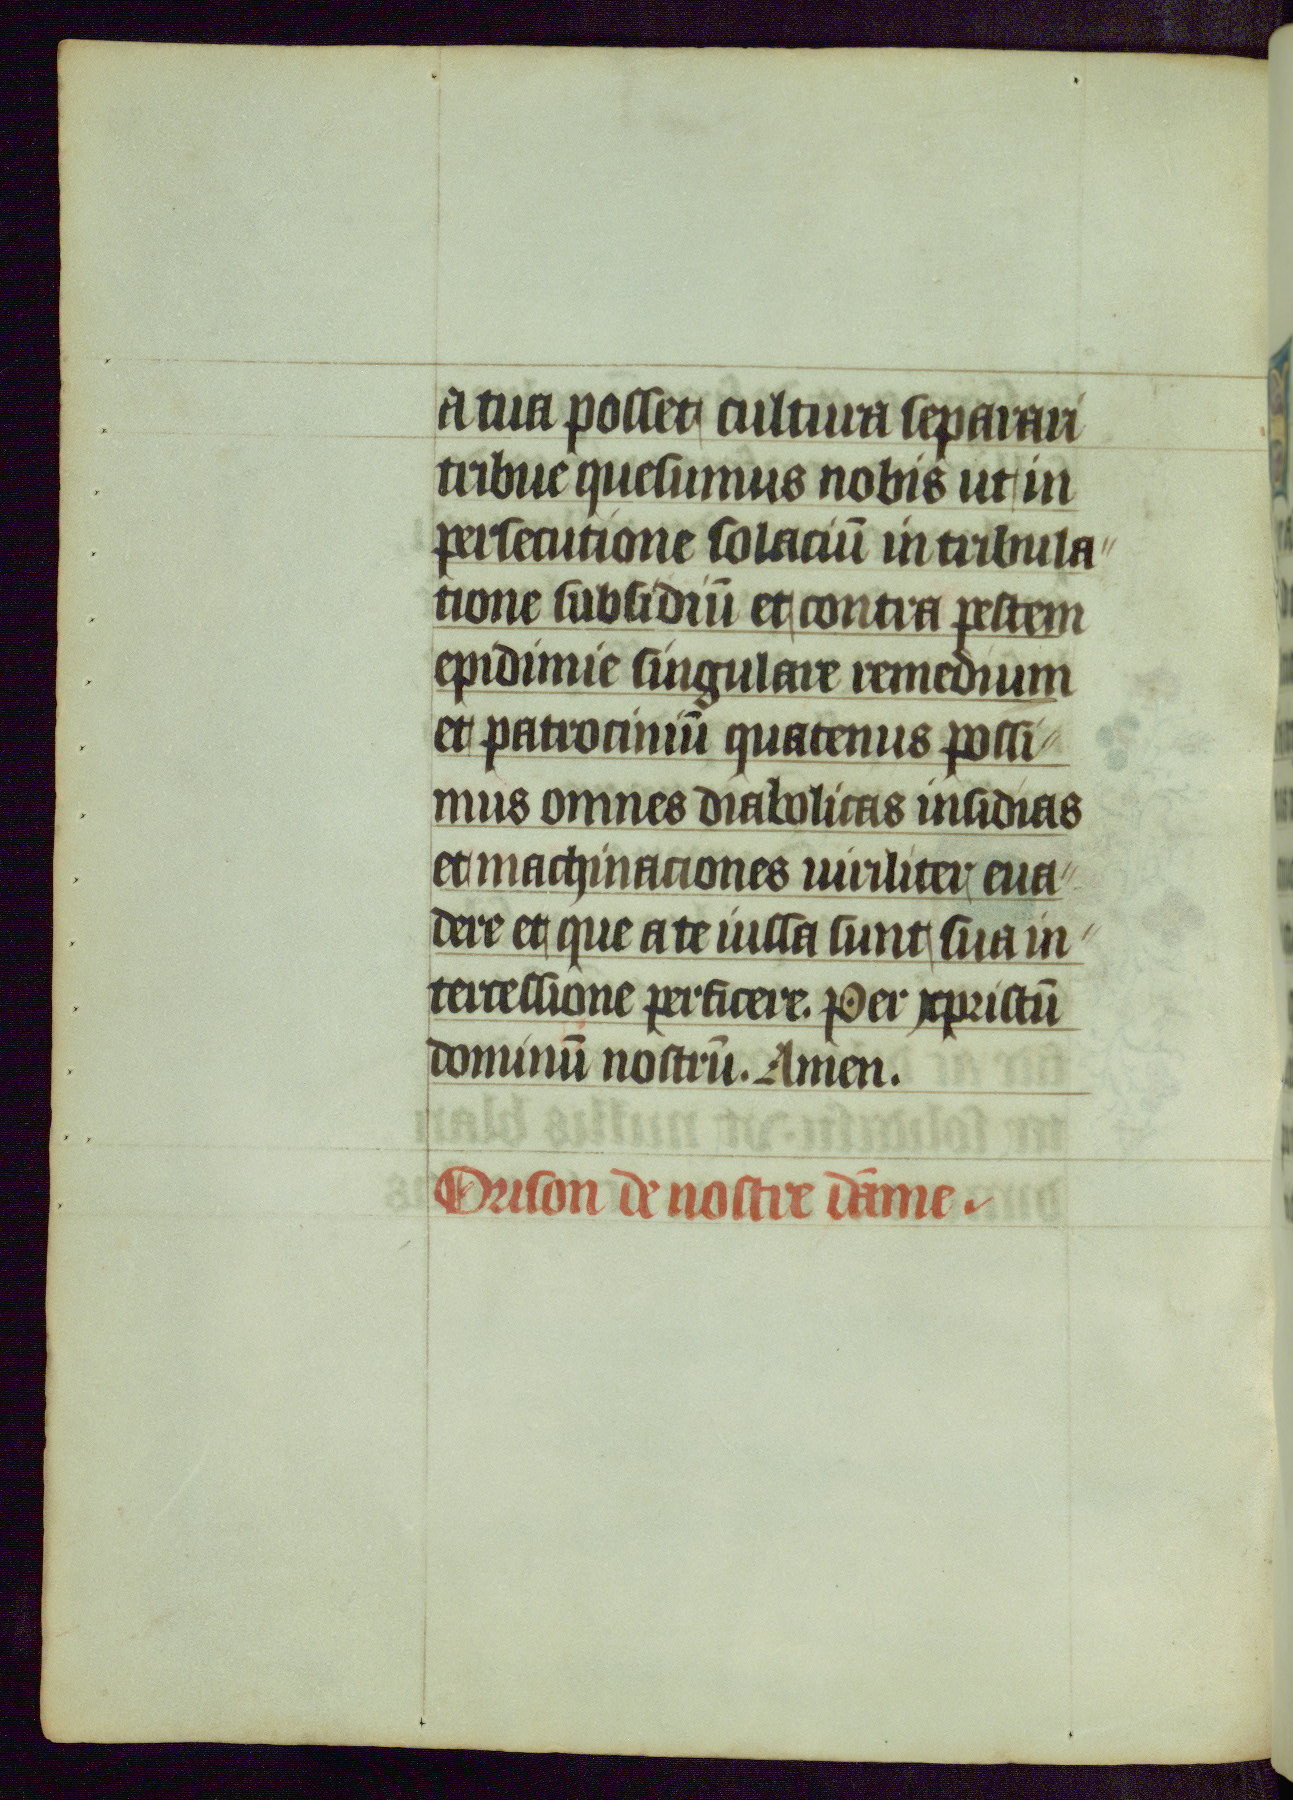 a tua posset cultura separari
tribue quesumus nobis ut in
persecutione solaciū in tribula"
tione subsidiū et contra pestem
epidimie singulare remedium
et patrociniū quatenus possi"
mus omnes diabolicas insidias
et machinaciones uiriliter eua"
dere et que a te iussa sunt sua in"
tercessione perficere. Per xpristū
dominū nostrū. Amen.
Orison de nostre dāme